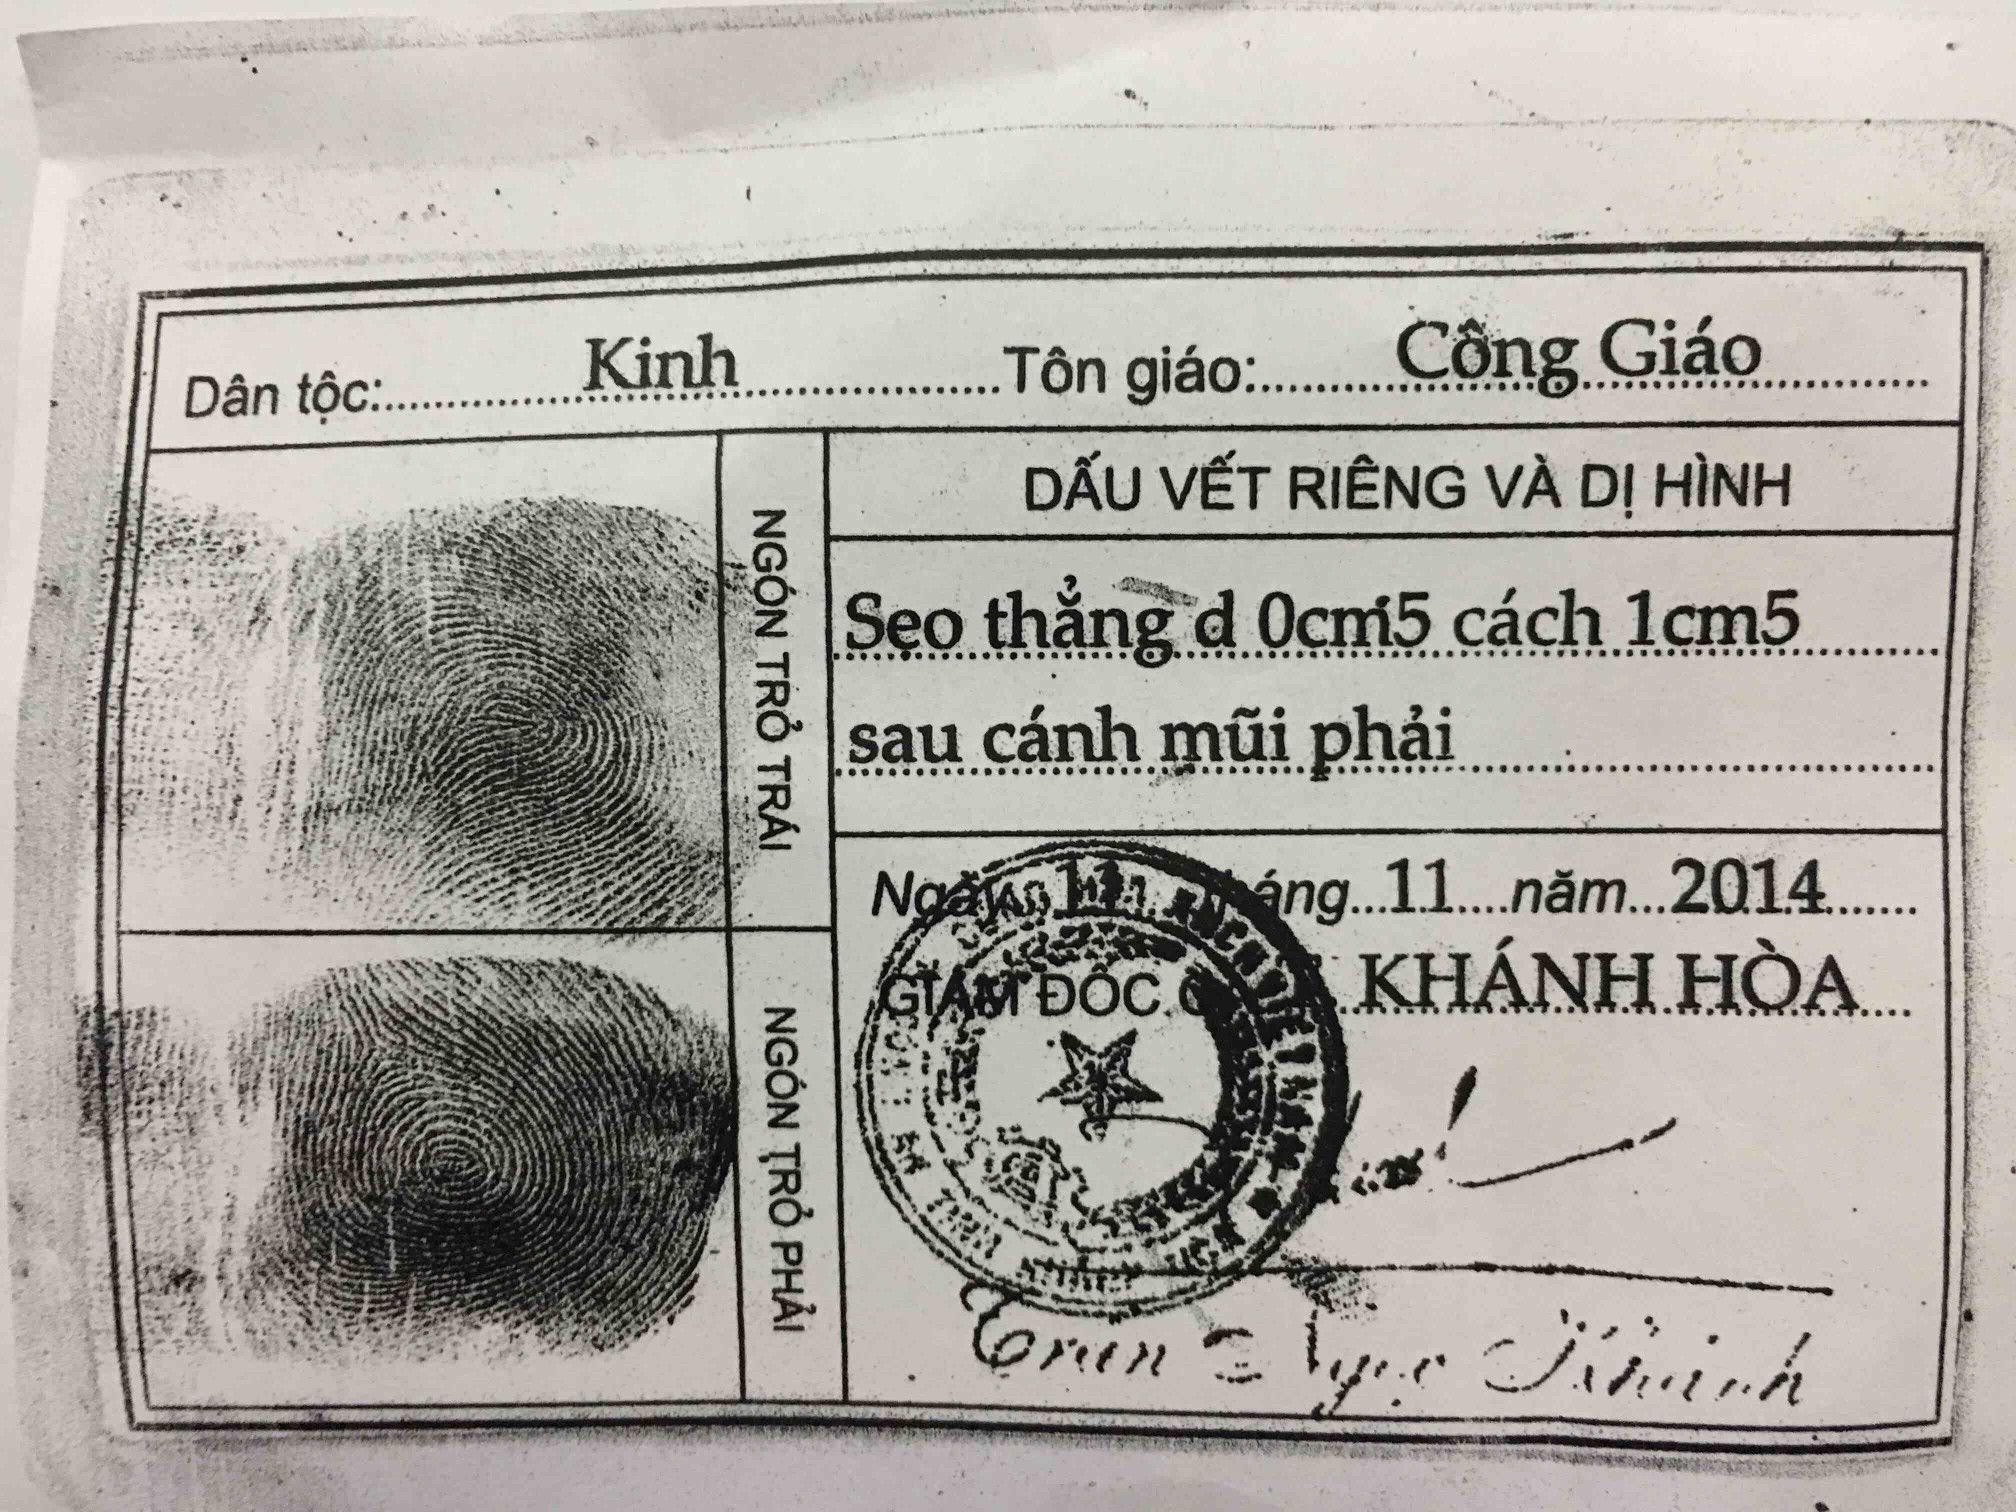 Dân tộc: Kinh Tôn giáo: Công Giáo
NGÓN TRỎ TRÁI
DẤU VẾT RIÊNG VÀ DỊ HÌNH
Sẹo thẳng d 0cm5 cách 1cm5
sau cánh mũi phải
NGÓN TRỎ PHẢI
Ngày 11 tháng 11 năm 2014
GIÁM ĐỐC CA KHÁNH HÒA
Ngọc Khánh